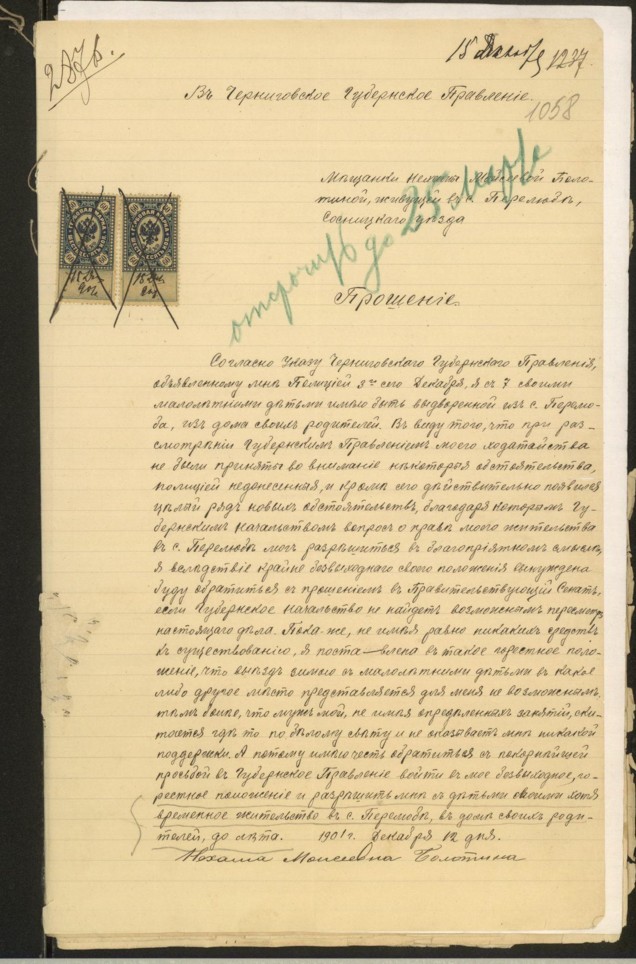 287 в.
15 Декабря 1237.
Въ Черниговское Губернское Правленіе.
1058
Мѣщанки Нехамы Мойсеевой Боло-
тиной, живущей въ с. Перелюбѣ,
Сосницкаго уѣзда
отсрочить до 25 Марта
15 Дек. 901
15 Дек. 901
Прошеніе.
Согласно Указу Черниговскаго Губернскаго Правленія,
объявленному мнѣ Полиціей 3го сего Декабря, я съ 7 своими
малолѣтними дѣтьми имѣю быть выдворенной изъ с. Перелю-
ба, изъ дома своихъ родителей. Въ виду того, что при раз-
смотрѣніи Губернскимъ Правленіемъ моего ходатайства
не были приняты во вниманіе нѣкоторыя обстоятельства,
полиціей недонесенныя, и кромѣ сего дѣйствительно появился
цѣлый рядъ новыхъ обстоятельствъ, благодаря которымъ Гу-
бернскимъ Начальствомъ вопросъ о правѣ моего жительства
въ с. Перелюбѣ могъ разрѣшиться въ благопріятномъ смыслѣ,
я вслѣдствіе крайне безвыходнаго своего положенія вынуждена
буду обратиться съ прошеніемъ въ Правительствующій Сенатъ,
если Губернское Начальство не найдетъ возможнымъ пересмотръ
настоящаго дѣла. Пока-же, не имѣя равно никакихъ средствъ
къ существованію, я поста-влена въ такое горестное поло-
женіе, что выѣздъ зимою съ малолѣтними дѣтьми въ какое
либо другое мѣсто представляется для меня не возможнымъ,
тѣмъ болѣе, что мужъ мой, не имѣя опредѣленныхъ занятій, ски-
тается гдѣ то по бѣлому свѣту и не оказываетъ мнѣ никакой
поддержки. А потому имѣю честь обратиться съ покорнѣйшей
просьбой въ Губернское Правленіе войти въ мое безвыходное, го-
рестное положеніе и разрѣшить мнѣ съ дѣтьми своими хотя
временное жительство въ с. Перелюбѣ, въ домѣ своихъ роди-
телей, до лѣта. 1901 г. Декабря 12 дня.
Нехама Моисеевна Болотина